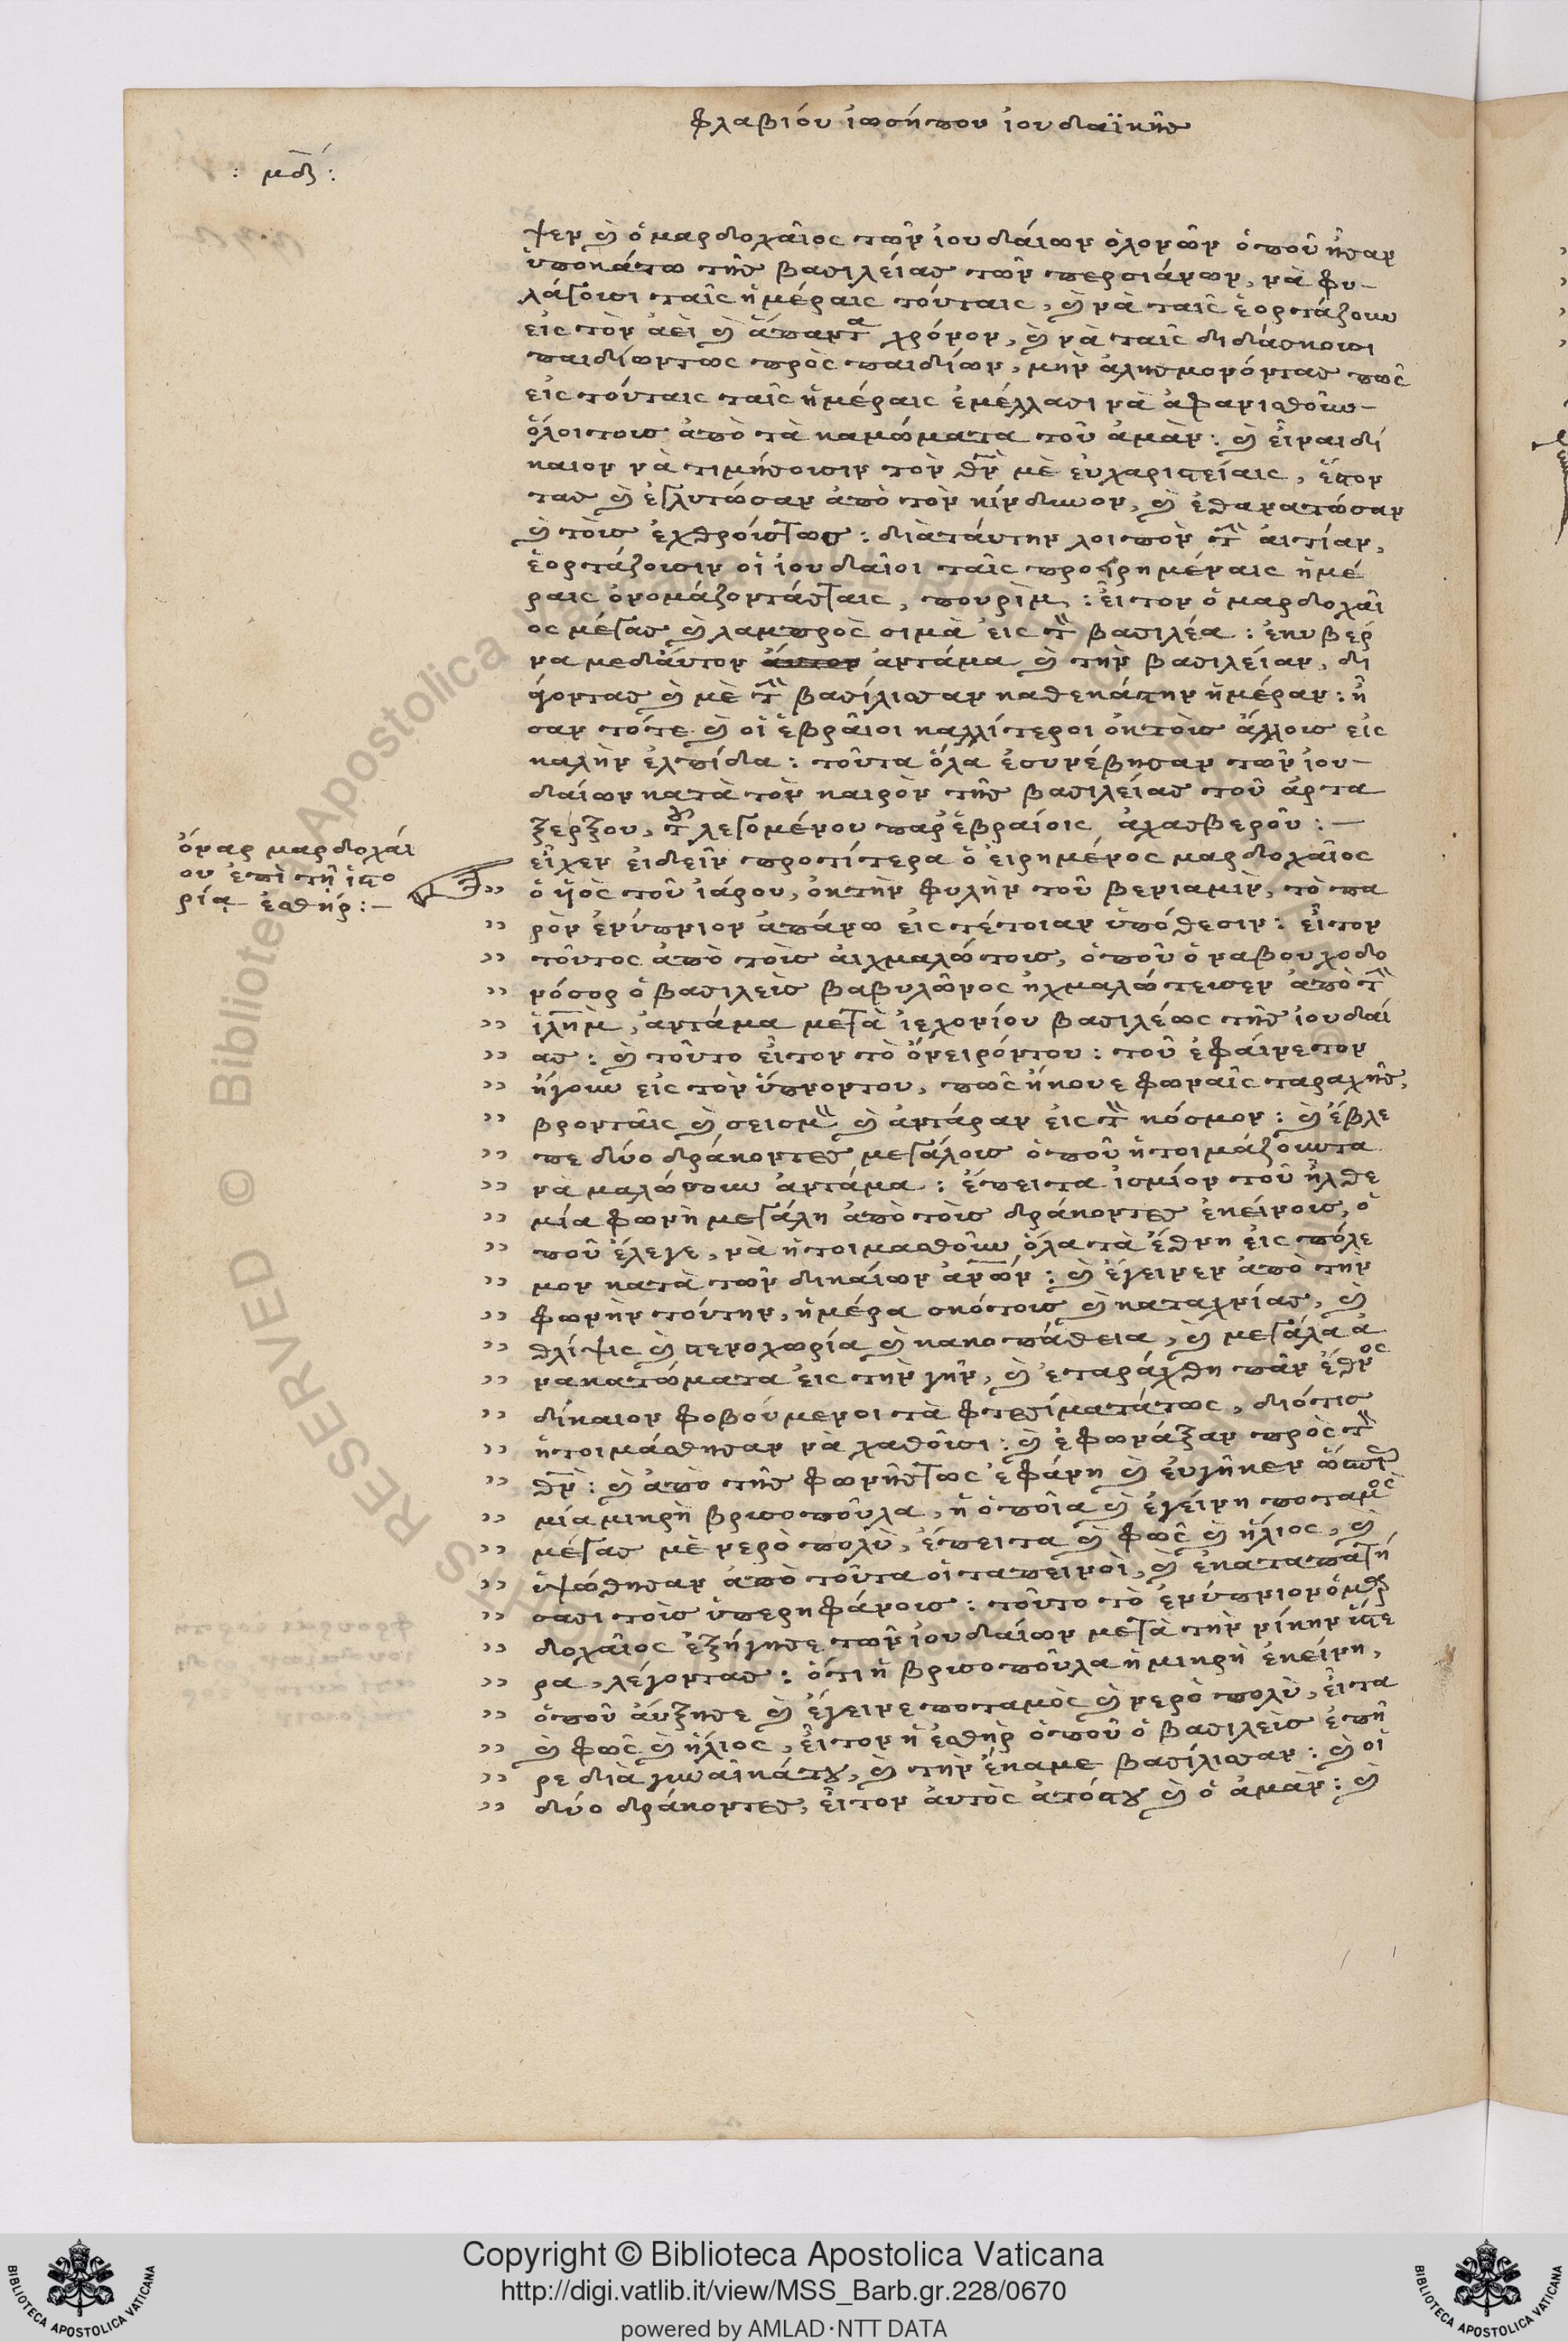 φλαβιόυ ἰωσήπου ἰουδαϊκῆς
: μδ :
ψεν ϗ ὁ μαρδοχαῖος τῶν ἰουδαίων ὁλονῶν ὁποῦ ἦσαν
ὑποκάτω τῆς βασιλείας τῶν περσιάνων, νὰ φυ-
λάγουσι ταῖς ἡμέραις τούταις, ϗ νὰ ταῖς ἑορτάζουν
εἰς τὸν ἀεὶ ϗ ἅπαντα χρόνον, ϗ νὰ ταῖς διδάσκουσι
παιδίωντως πρὸς παιδίων, μὴν ἀλησμονόντας πῶς
εἰς τούταις ταῖς ἡμέραις ἐμέλλασι νὰ ἀφανισθοῦν-
ὅλοιτους ἀπὸ τὰ καμώματα τοῦ ἀμὰν : ϗ εἶναι δί
καιον νὰ τιμήσουσιν τὸν θν μὲ εὐχαριστείαις, ἔστον
τας ϗ ἐγλυτώσαν ἀπὸ τὸν κίνδυνον, ϗ ἐθανατώσαν
ϗ τοὺς ἐχθρούστως : διὰτάυτην λοιπὸν τὴν ἀιτίαν,
ἑορτάζουσιν οἱ ἰουδαῖοι ταῖς προειρημέναις ἡμέ
ραις ὀνομάζοντάσταις, πουρὶμ, : εἶτον ὁ μαρδοχαῖ
ος μέγας ϗ λαμπρὸς σιμὰ εἰς τὸν βασιλέα : ἐκυβέρ
να μεδάυτον ἀντάμα ϗ τὴν βασιλείαν, δι
άγοντας ϗ μὲ τὴν βασίλισσαν καθεκάστην ἡμέραν : ἦ
σαν τότε ϗ οἱ ἑβραῖοι καλλίτεροι ἐκ τοὺς ἄλλους εἰς
καλὴν ἐλπίδα : τοῦτα ὅλα ἐσυνέβησαν τῶν ἰου-
δαίων κατὰ τὸν καιρὸν τῆς βασιλείας τοῦ ἀρτα
ξερξου, τοῦ λεγομένου παρ' ἑβραίοις ἀχασβεροῦν : —
εἶχεν εἰδεῖν προτίτερα ὁ ειρημένος μαρδοχαῖος
ὄναρ μαρδοχάι
ου ἐπὶ τῇ ἱστο
ρίᾳ ἐσθήρ : —
" ὁ ὑὸς τοῦ ἰάρου, ἐκ τὴν φυλὴν τοῦ βενιαμὶν, τὸ πα
" ρὸν ἐνύπνιον ἀπάνω εἰς τέτοιαν ὑπόθεσιν : εἶτον
" τοῦτος ἀπὸ τοὺς ἀιχμαλώτους, ὁποῦ ὁ ναβουχοδο
" νόσορ ὁ βασιλεὺς βαβυλῶνος ἠχμαλώτευσεν ἀπὸ τὴν
" ἱλημ, ἀντάμα μετὰ ἰεχονίου βασιλέως τῆς ἰουδαί
" ας : ϗ τοῦτο εἶτον τὸ ὄνειρόντου : τοῦ ἐφάινετον
" ἤγουν εἰς τὸν ὕπνοντου, πῶς ἤκουε φωναῖς ταραχῆς,
" βρονταῖς ϗ σεισμὸν ϗ ἀντάραν εἰς τὸν κόσμον : ϗ ἔβλε
" πε δύο δράκοντες μεγάλους ὁποῦ ἡτοιμάζουντα
" νὰ μαλώσουν ἀντάμα : ἔπειτα ἰσμίον τοῦ ἦλθε
" μία φωνὴ μεγάλη ἀπὸ τοὺς δράκοντες ἐκείνους, ὁ
" ποῦ ἔλεγε, νὰ ἡτοιμασθοῦν ὅλα τὰ ἔθνη εἰς πόλε
" μον κατὰ τῶν δικαίων ἀνων : ϗ ἔγεινεν ἀπὸ τὴν
" φωνὴν τούτην, ἡμέρα σκότους ϗ καταχνίας, ϗ
" θλίψις ϗ στενοχωρία ϗ κακοπάθεια, ϗ μεγάλα ἀ
" νακατώματα εἰς τὴν γῆν, ϗ ἐταράχθη πᾶν ἔθνος
" δίκαιον φοβούμενοι τὰ φτεσίματάτως, διότις
" ἡτοιμάσθησαν νὰ χαθοῦσι : ϗ ἐφωνάξαν πρὸς τὸν
" θν : ϗ ἀπὸ τῆς φωνῆστως ἐφάνη ϗ ἐυγῆκεν ὥσπερ
" μία μικρὴ βρυσοποῦλα, ἡ ὁποῖα ϗ ἐγείνη ποταμὸς
" μέγας μὲ νερὸ πολὺ, ἔπειτα ϗ φῶς ϗ ἥλιος, ϗ
" ὑψώθησαν ἀπὸ τοῦτα οἱ ταπεινοὶ, ϗ ἐκαταπατή
" σασι τοὺς ὑπερηφάνους : τοῦτο τὸ ἐνύπνιον ὁ μαρ
" δοχαῖος ἐξήγησε τῶν ἰουδαίων μετὰ τὴν νίκην ὕστε
" ρα, λέγοντας : ὅτι ἡ βρυσοποῦλα ἡ μικρὴ ἐκείνη,
" ὁποῦ ἀύξησε ϗ ἔγεινε ποταμὸς ϗ νερὸ πολὺ, εἶτα
" ϗ φῶς ϗ ἥλιος, εἶτον ἡ ἐσθὴρ ὁποῦ ὁ βασιλεὺς ἐπῆ
" ρε διὰ γυναῖκάτου, ϗ τὴν ἔκαμε βασίλισσαν : ϗ οἱ
" δύο δράκοντες, εἶτον ἀυτὸς ἀτόστου ϗ ὁ ἀμὰν : ϗ
Copyright © Biblioteca Apostolica Vaticana
http://digi.vatlib.it/view/MSS_Barb.gr.228/0670
powered by AMLAD·NTT DATA